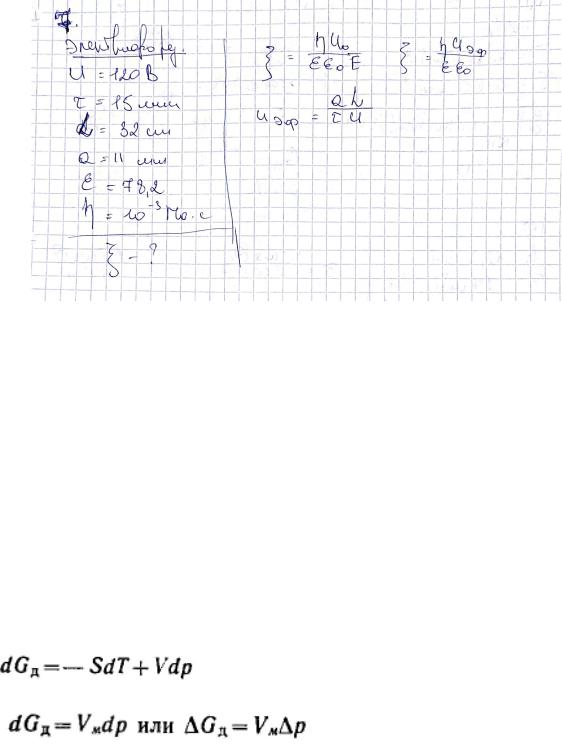 7.
Электрофорез.
U = 120 В
τ = 15 мин
L = 32 см
a = 11 мм
ε = 78,2
η = 10⁻³ Па·с
ξ - ?
ξ = ηu₀ / εε₀E ξ = ηuэф / εε₀
uэф = aL / τU
dGд = — SdT + Vdp
dGд = Vмdp или ΔGд = VмΔp